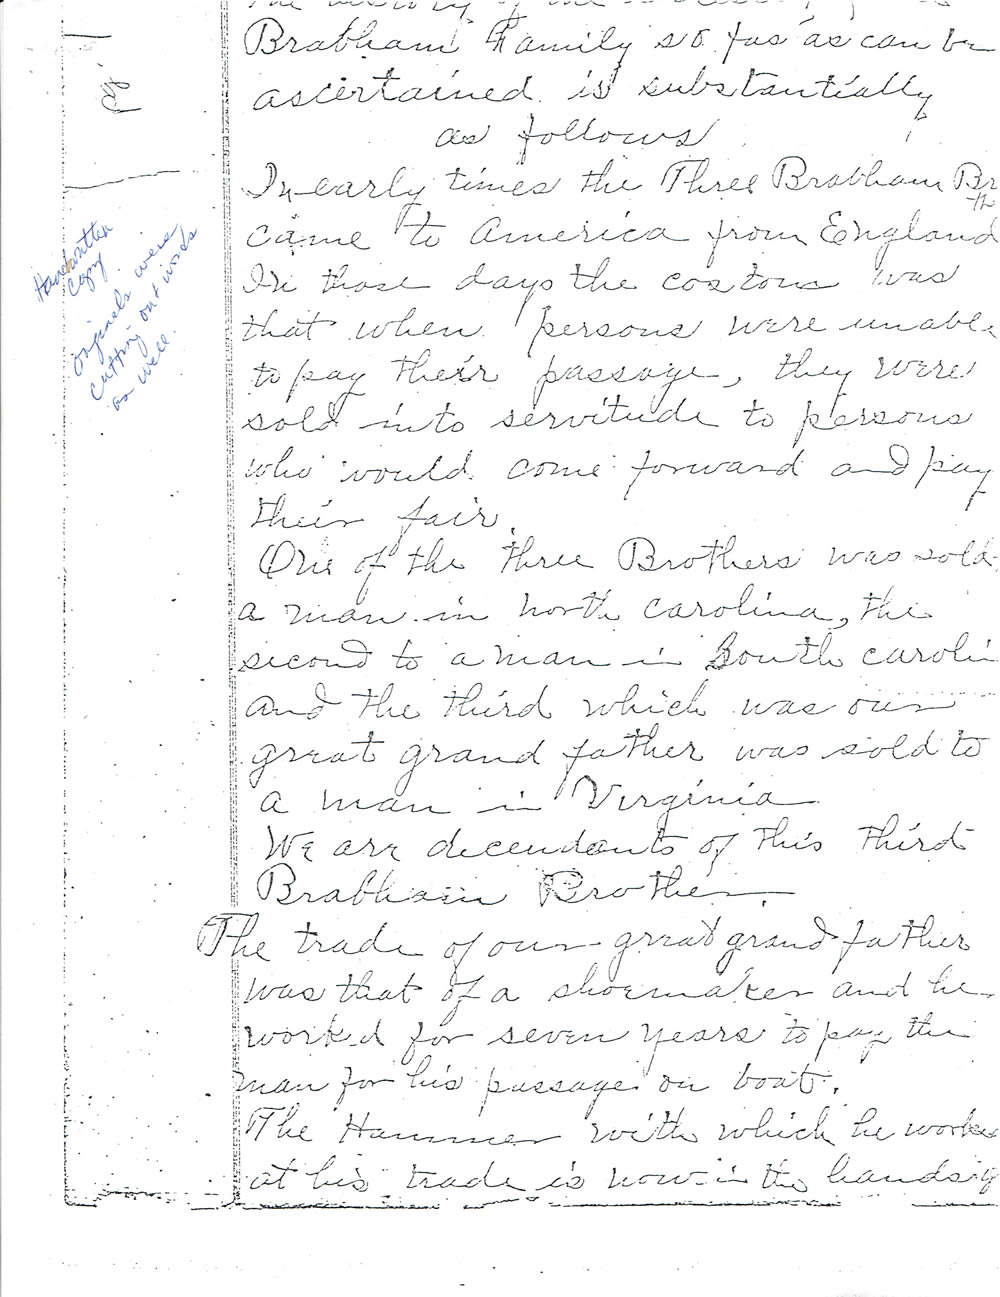 The history of the
Brabham Family so far as can be
ascertained is substantially
as follows
In early times the Three Brabham Br
th
came to America from England
In those days the costom was
that when persons were unable
to pay their passage, they were
sold into servitude to persons
who would come forward and pay
their fair.
One of the three Brothers was sold
a man in north carolina, the
second to a man in South caroli
and the third which was our
great grand father was sold to
a man in Virginia
We are decendants of this third
Brabham Brother.
The trade of our great grand father
was that of a shoemaker and he
worked for seven years to pay the
man for his passage on boat.
The Hammer with which he worke
at his trade is now in the hands of
Handwritten
copy
originals were
cutting out words
as well.